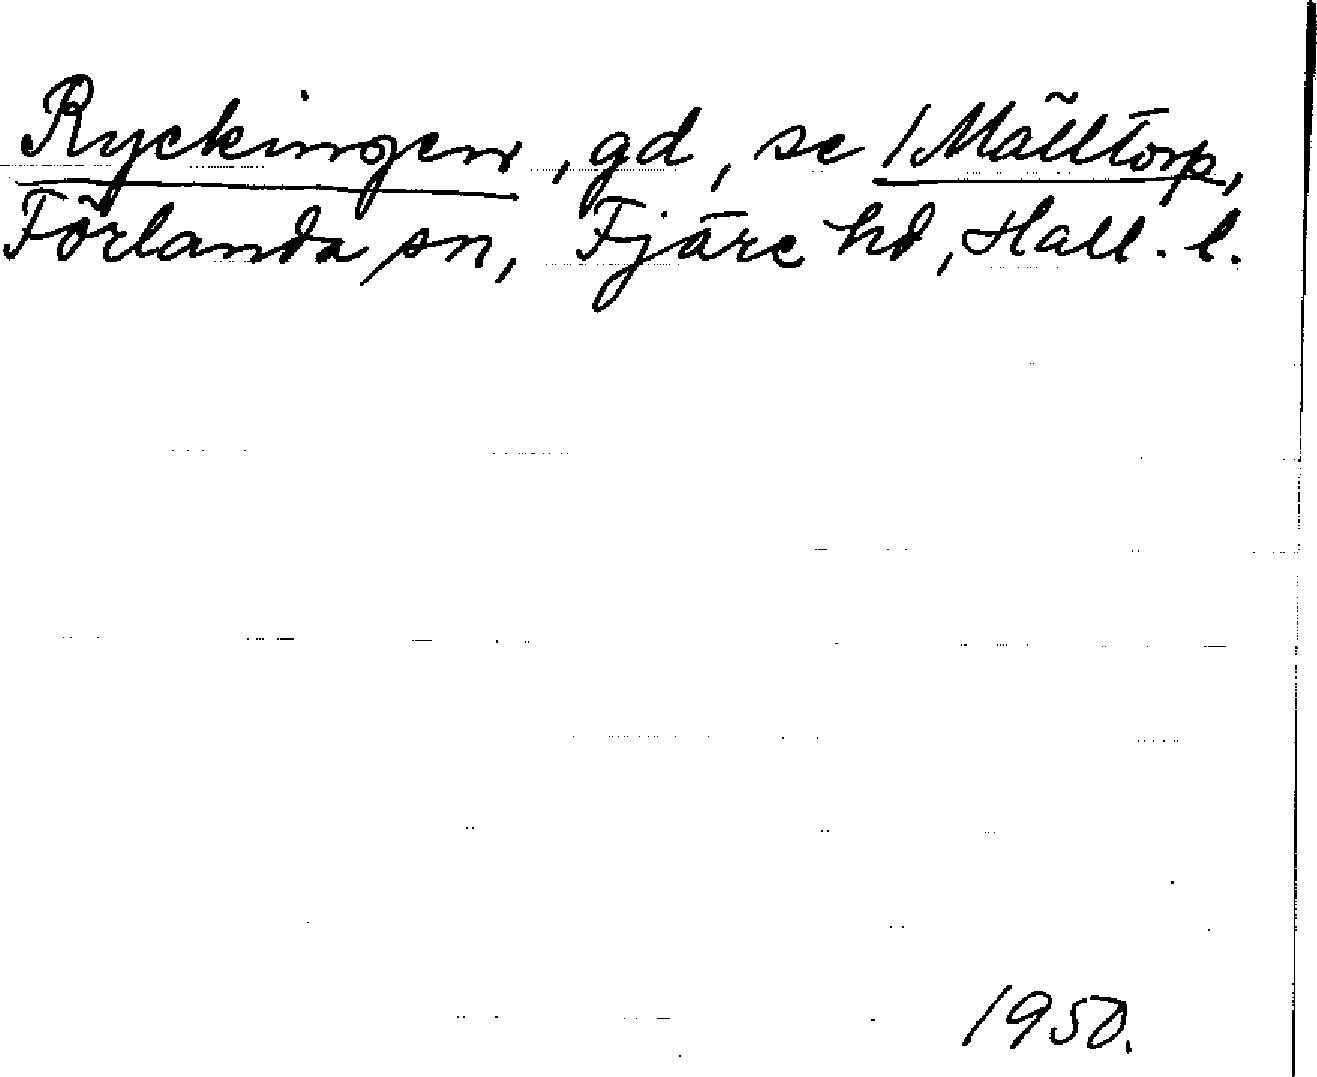 Ryckingen, gd, se /Mälltorp,
Förlanda sn, Fjäre hd, Hall. l.
1950.